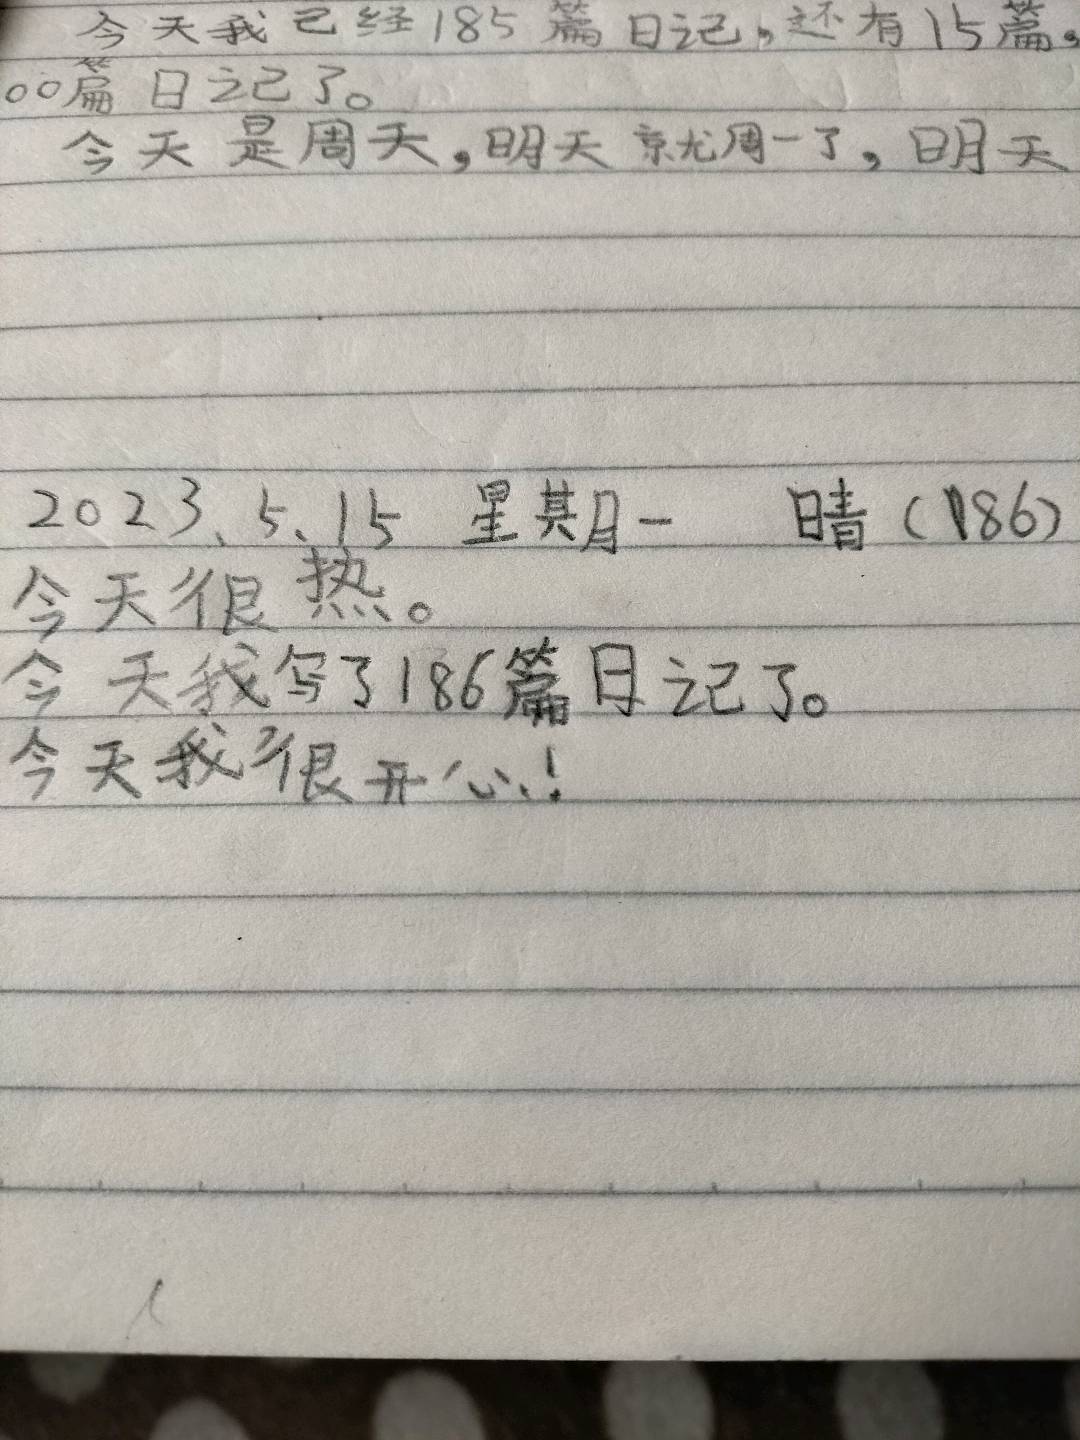 今天我已经185篇日记,还有15篇,
00篇日记了。
今天是周天,明天就周一了,明天
2023、5、15 星期一 晴(186)
今天很热。
今天我写了186篇日记了。
今天我很开心!